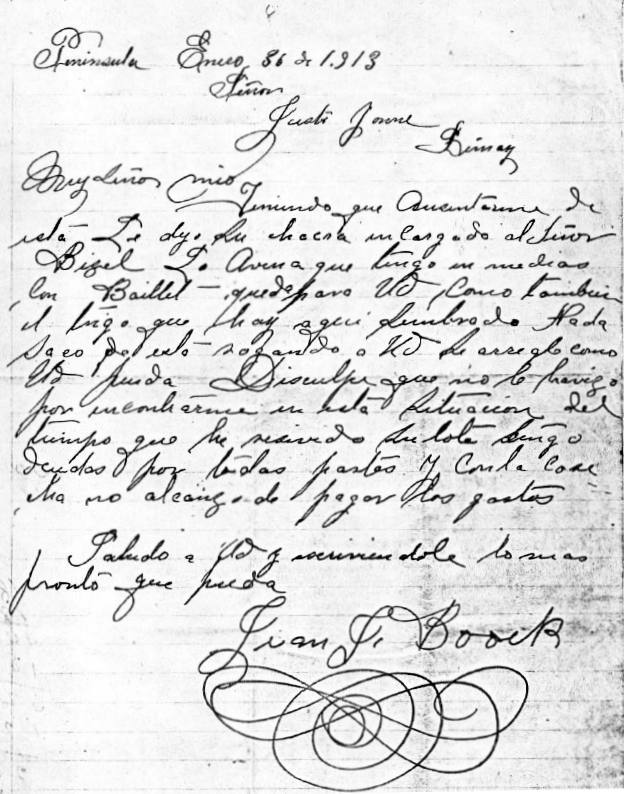 Peninsula Enero 31 de 1.913
Señor
Justi Jonne
Muy Señor mio
Teniendo que ausentarme de
está Le dejo su chacra incargado al Señor
Bizel La Avena que tingo en medias
Con Baillet queda para Ud como tambien
el trigo que hay aqui sembrado Nada
saco de está rogando a Ud se arregle como
Ud pueda Disculpe que no le
por incontrarme in está situacion del
tiempo que he su lote tingo
deudas por todas partes y con la cose
cha no alcanzo de pagar los gastos
Saludo a Ud y escriviendole lo mas
pronto que pueda
Juan F. Boock